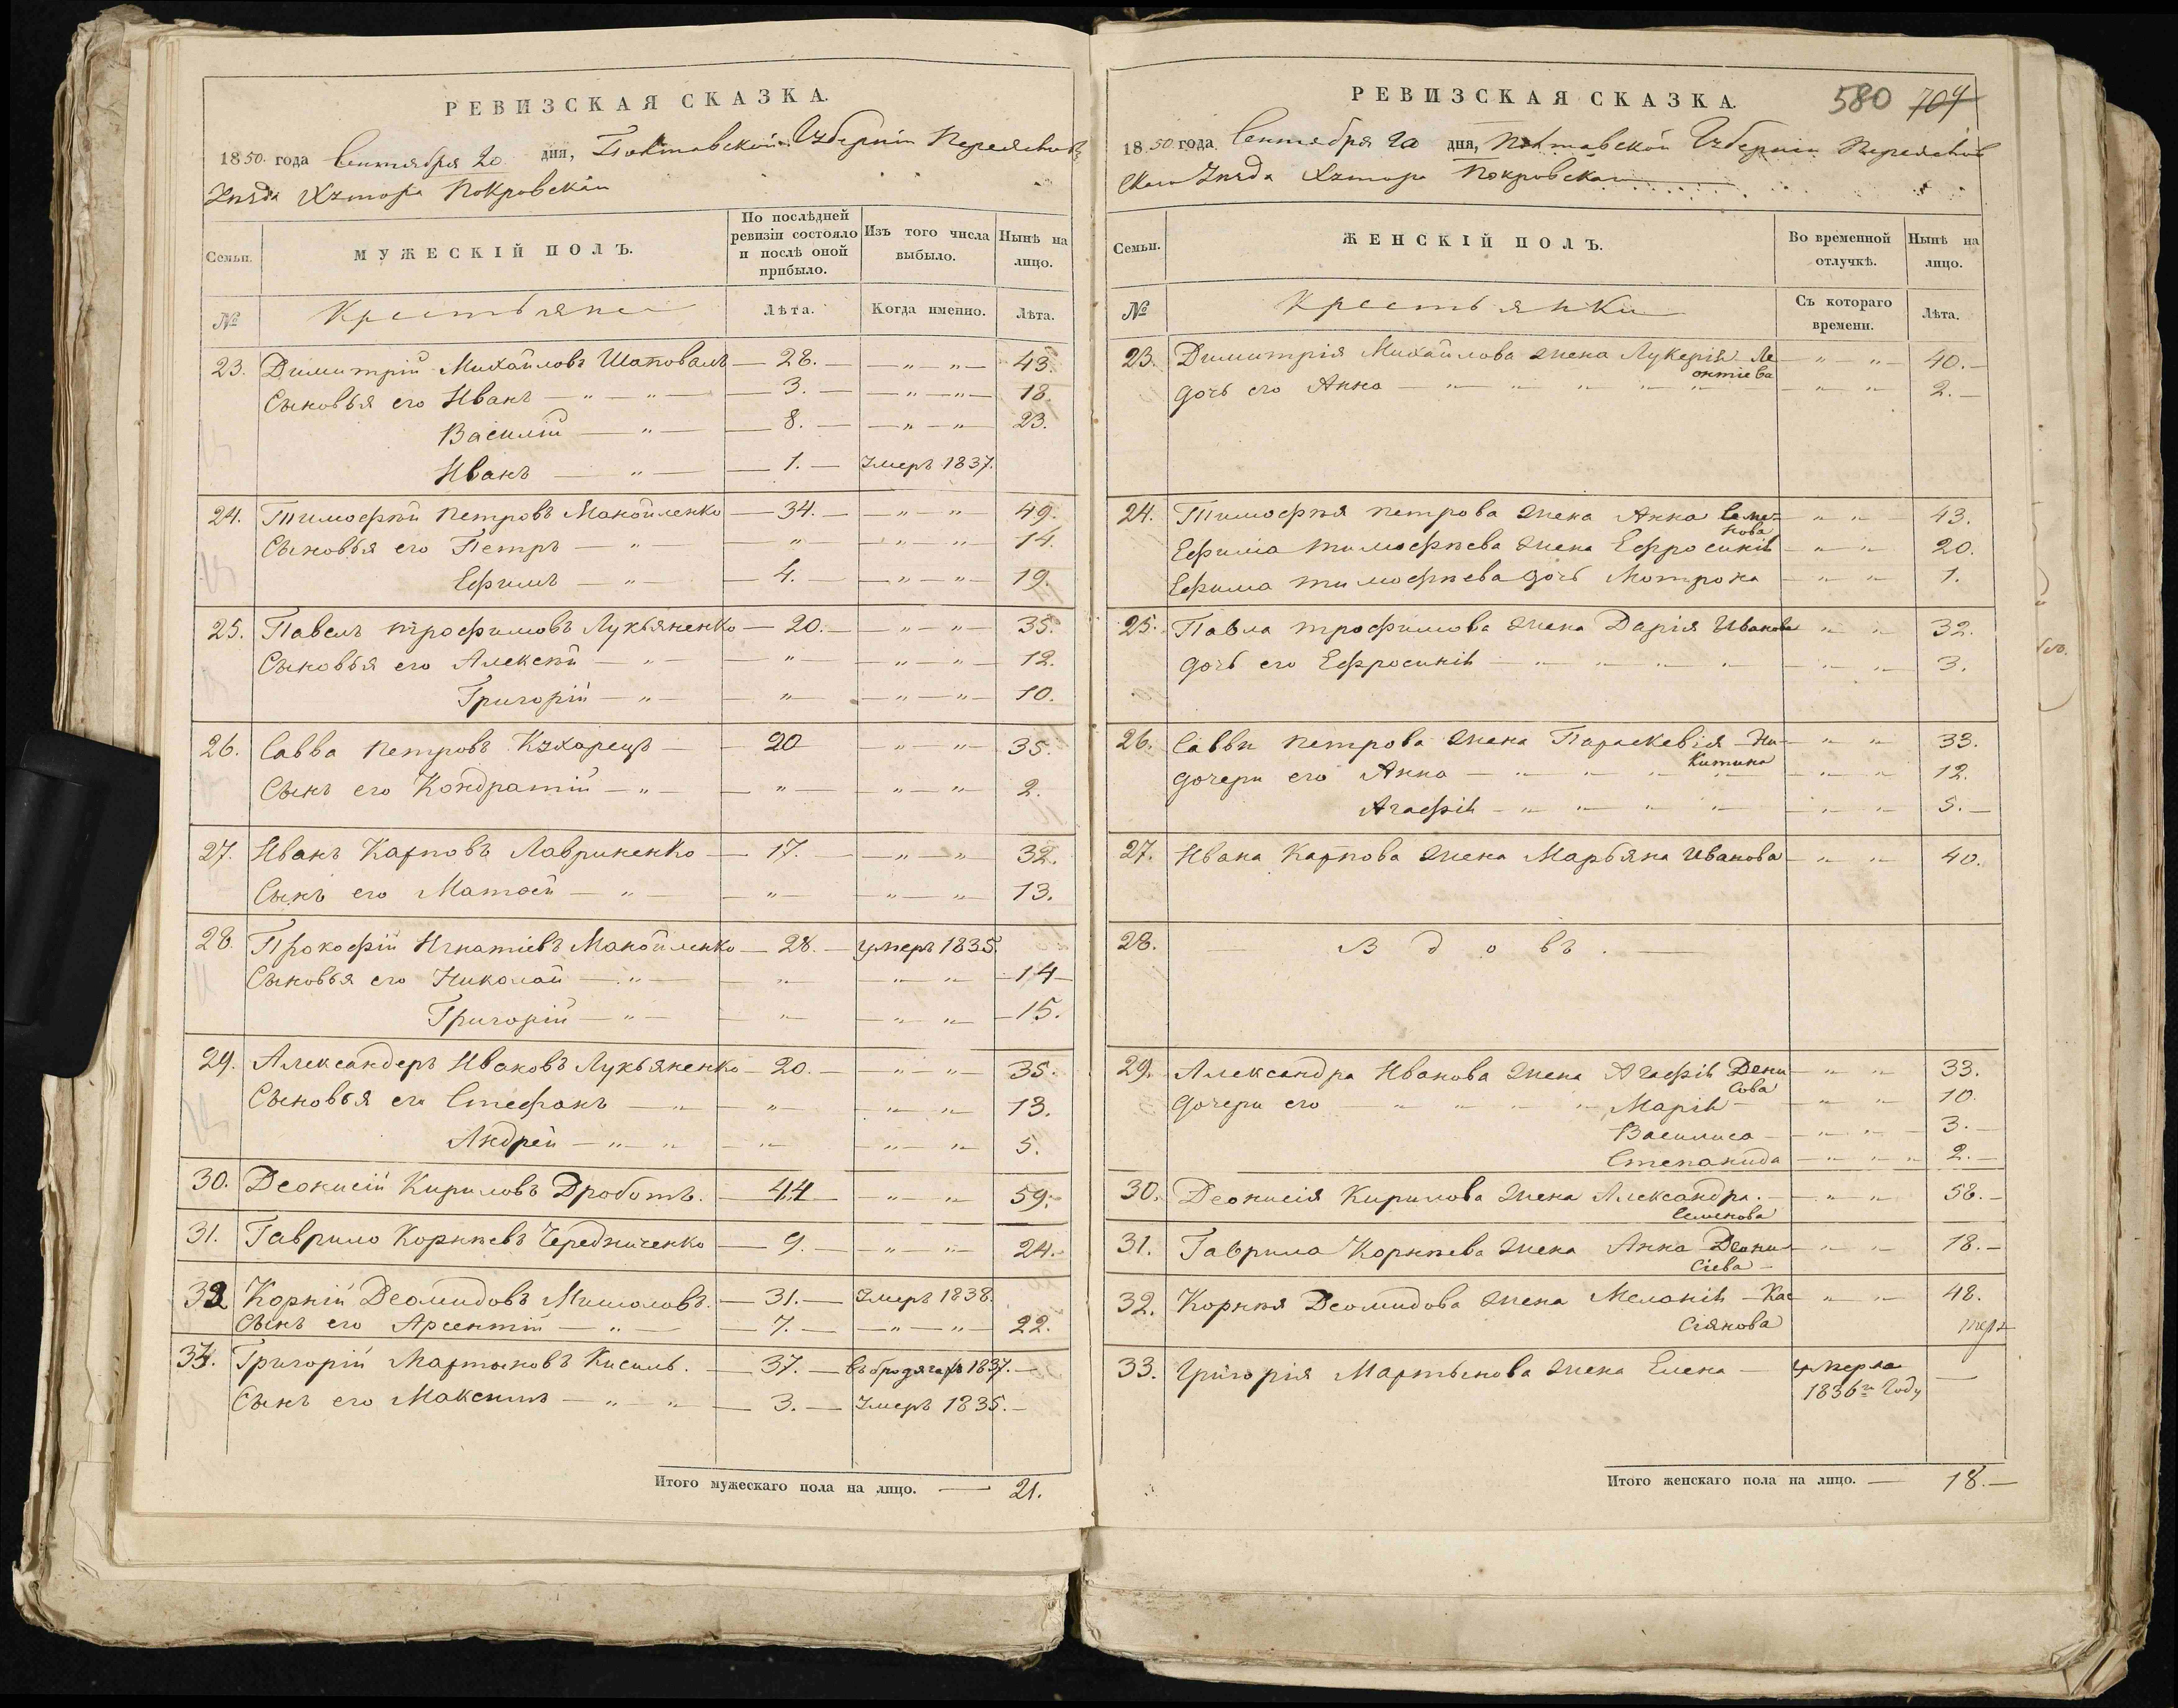 РЕВИЗСКАЯ СКАЗКА.
1850 года Сентября 20 дня, Полтавской Губерніи Переяслов
Уѣзда Хутора Покровской
Семьи.
МУЖЕСКІЙ ПОЛЪ.
По послѣдней ревизіи состояло и послѣ оной прибыло.
Изъ того числа выбыло.
Нынѣ на лицо.
№
Крестьяне
Лѣта.
Когда именно.
Лѣта.
23. Димитрій Михайловъ Шаповалъ — 28. — — „ — „ — 43.
Сыновья его Иванъ — „ — „ — 3. — — „ — „ — 18.
Василій — „ — 8. — — „ — „ 23.
Иванъ — „ — 1. — Умеръ 1837.
24. Тимофѣй Петровъ Манойленко — 34. — — „ — „ — 49.
Сыновья его Петръ — „ — „ — „ — „ — 14.
Ефимъ — „ — 4. — — „ — „ — 19.
25. Павелъ Трофимовъ Лукьяненко — 20. — — „ — „ — 35.
Сыновья его Алексѣй — „ — „ — „ — „ — 12.
Григорій — „ — „ — „ — „ — 10.
26. Савва Петровъ Кухарецъ — 20 — „ — „ — 35.
Сынъ его Кондратій — „ — „ — „ — „ — 2.
27. Иванъ Карповъ Лавриненко — 17. — — „ — „ — 32.
Сынъ его Матвей — „ — „ — „ — „ — 13.
28. Прокофій Игнатіевъ Манойленко — 28. — умеръ 1835.
Сыновья его Николай — „ — „ — „ — „ — 14 —
Григорій — „ — „ — „ — „ — 15.
29. Александеръ Ивановъ Лукьяненко — 20. — — „ — „ — 35.
Сыновья его Стефанъ — „ — „ — „ — „ — 13.
Андрей — „ — „ — „ — „ — „ 5.
30. Деонисій Кириловъ Дроботъ. — 44 — „ — „ — 59.
31. Гаврило Корнѣевъ Чередниченко — 9. — „ — „ — 24.
32 Корній Деомидовъ Мишоловъ. — 31. — Умеръ 1838.
Сынъ его Арсентій — „ — 7. — — „ — „ — 22.
33. Григорій Мартыновъ Кисиль. — 37. — въ бродягахъ 1837. —
Сынъ его Максимъ — „ — „ — 3. — Умеръ 1835. —
Итого мужескаго пола на лицо. — 21.
580 704
РЕВИЗСКАЯ СКАЗКА.
1850 года Сентября 20 дня, Полтавской Губерніи Переяслов
скаго Уѣзда Хутора Покровской
Семьи.
ЖЕНСКІЙ ПОЛЪ.
Во временной отлучкѣ.
Нынѣ на лицо.
№
Крестьянки
Съ котораго времени.
Лѣта.
23. Димитрія Михайлова жена Лукерія Ле — „ „ — 40. —
онтіева
дочь его Анна — „ — „ — „ — „ — „ — „ 2. —
24. Тимофѣя Петрова жена Анна Семе- — „ — „ — 43.
нова
Ефима Тимофѣева жена Ефросинія — „ — „ 20.
Ефима Тимофѣева дочь Мотрона — „ — „ 1.
25. Павла Трофимова жена Дарія Иванова „ — „ 32.
дочь его Ефросинія — „ — „ — „ — „ — „ — „ 3.
26. Саввы Петрова жена Параскевія Ни- — „ — „ 33.
китина
дочери его Анна — „ — „ — „ — „ — „ — „ 12.
Агафія — „ — „ — „ — „ — „ — „ 5. —
27. Ивана Карпова жена Марьяна Иванова — „ — „ 40.
28. — Вдовъ. —
29. Александра Иванова жена Агафія Дени — „ — „ 33.
сова
дочери его — „ — „ — „ — „ Марія — „ — „ 10.
Василиса — „ — „ — 3. —
Степанида — „ — „ — „ 2. —
30. Деонисія Кирилова жена Александра. — „ — „ 58. —
Семенова
31. Гаврила Корнѣева жена Анна Деони — „ — „ 18. —
сіева —
32. Корнѣя Деомидова жена Меланія Кас — „ — „ 48.
сіянова
33. Григорія Мартынова жена Елена — умерла —
1836го Году
Итого женскаго пола на лицо. — 18. —